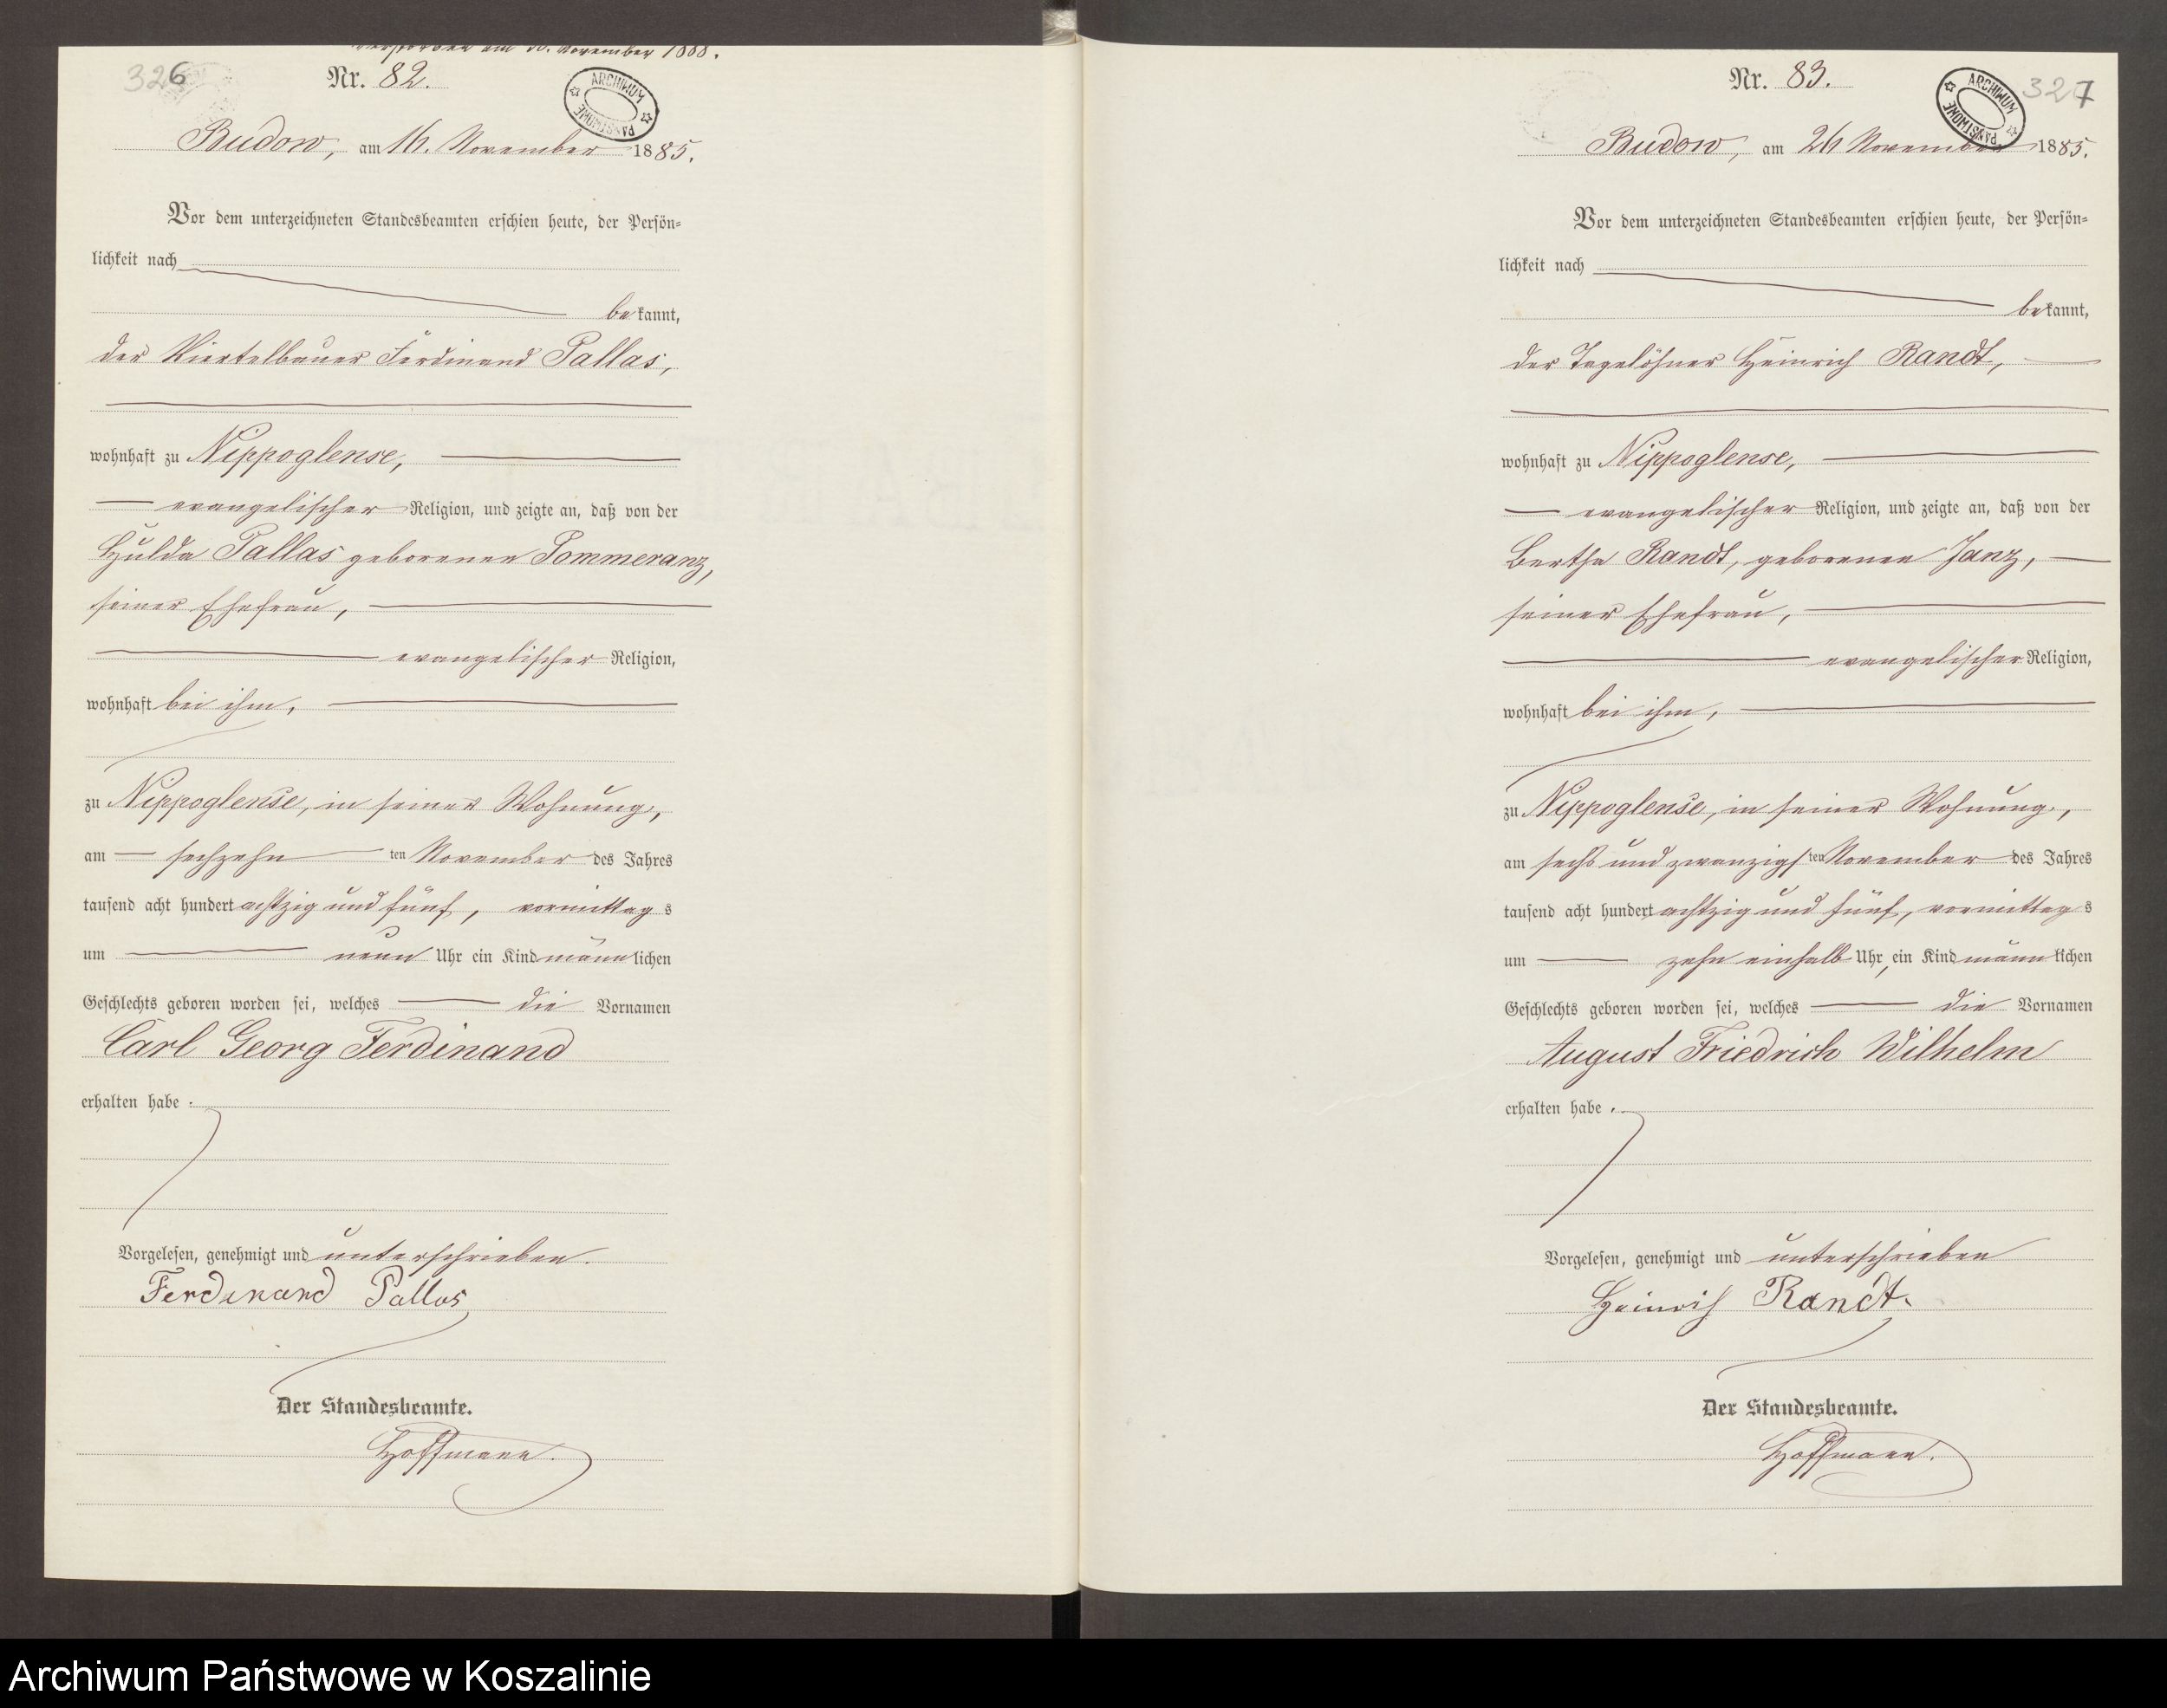 November 1888.
326
Nr. 82.
ARCHIWUM
PAŃSTWOWE
Budow, am 16. November 1885.
Vor dem unterzeichneten Standesbeamten erschien heute, der Persön=
lichkeit nach
bekannt,
der Viertelbauer Ferdinand Pallas,
wohnhaft zu Nippoglense,
evangelischer Religion, und zeigte an, daß von der
Hulda Pallas geborenen Pommeranz,
seiner Ehefrau,
evangelischer Religion,
wohnhaft bei ihm,
zu Nippoglense, in seiner Wohnung,
am sechzehn ten November des Jahres
tausend acht hundert achtzig und fünf, vormittags
um neun Uhr ein Kind männlichen
Geschlechts geboren worden sei, welches die Vornamen
Carl Georg Ferdinand
erhalten habe.
Vorgelesen, genehmigt und unterschrieben.
Ferdinand Pallas
Der Standesbeamte.
Hoffmann.
Nr. 83.
ARCHIWUM
PAŃSTWOWE
327
Budow, am 26 November 1885.
Vor dem unterzeichneten Standesbeamten erschien heute, der Persön=
lichkeit nach
bekannt,
der Tagelöhner Heinrich Randt,
wohnhaft zu Nippoglense,
evangelischer Religion, und zeigte an, daß von der
Bertha Randt, geborenen Janz,
seiner Ehefrau,
evangelischer Religion,
wohnhaft bei ihm,
zu Nippoglense, in seiner Wohnung,
am sechs und zwanzigsten November des Jahres
tausend acht hundert achtzig und fünf, vormittags
um zehn einhalb Uhr, ein Kind männlichen
Geschlechts geboren worden sei, welches die Vornamen
August Friedrich Wilhelm
erhalten habe.
Vorgelesen, genehmigt und unterschrieben
Heinrich Randt.
Der Standesbeamte.
Hoffmann.
Archiwum Państwowe w Koszalinie